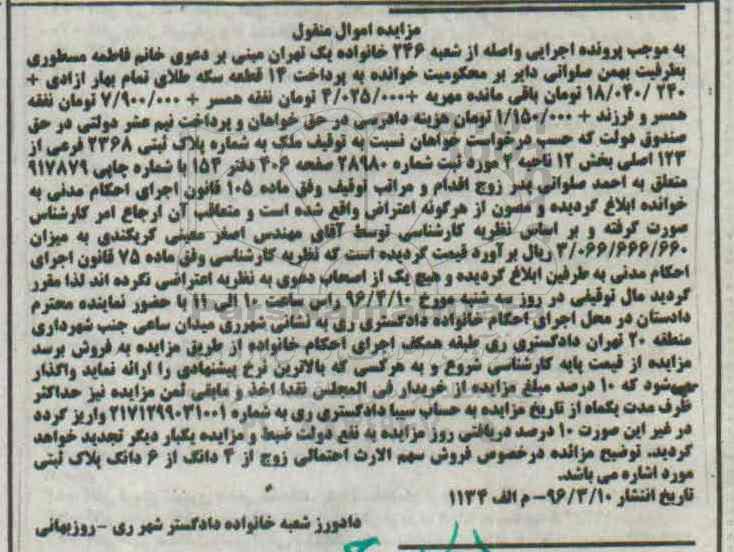 مزایده اموال منقول
به موجب پرونده اجرایی واصله از شعبه ۲۴۶ خانواده یک تهران مبنی بر دعوی خانم فاطمه مسطوری
بطرفیت بهمن صلواتی دایر بر محکومیت خوانده به پرداخت ۱۴ قطعه سکه طلای تمام بهار ازادی +
۱۸/۰۴۰/۲۴۰ تومان باقی مانده مهریه +۴/۰۲۵/۰۰۰ تومان نفقه همسر + ۷/۹۰۰/۰۰۰ تومان نفقه
همسر و فرزند + ۱/۱۵۰/۰۰۰ تومان هزینه دادرسی در حق خواهان و پرداخت نیم عشر دولتی در حق
صندوق دولت که حسب درخواست خواهان نسبت به توقیف ملک به شماره پلاک ثبتی ۲۳۶۸ فرعی از
۱۲۳ اصلی بخش ۱۲ ناحیه ۲ مورد ثبت شماره ۲۸۹۸۰ صفحه ۴۰۶ دفتر ۱۵۴ با شماره چاپی ۹۱۷۸۷۹
متعلق به احمد صلواتی پدر زوج اقدام و مراتب توقیف وفق ماده ۱۰۵ قانون اجرای احکام مدنی به
خوانده ابلاغ گردیده و مصون از هرگونه اعتراض واقع شده است و متعاقب آن ارجاع امر کارشناس
صورت گرفته و بر اساس نظریه کارشناسی توسط آقای مهندس اصغر معینی کریکندی به میزان
۳/۰۶۶/۶۶۶/۶۶۰ ریال برآورد قیمت گردیده است که نظریه کارشناسی وفق ماده ۷۵ قانون اجرای
احکام مدنی به طرفین ابلاغ گردیده و هیچ یک از اصحاب دعوی به نظریه اعتراضی نکرده اند لذا مقرر
گردید مال توقیفی در روز سه شنبه مورخ ۹۶/۴/۱۰ راس ساعت ۱۰ الی ۱۱ با حضور نماینده محترم
دادستان در محل اجرای احکام خانواده دادگستری ری به نشانی شهرری میدان ساعی جنب شهرداری
منطقه ۲۰ تهران دادگستری ری طبقه همکف اجرای احکام خانواده از طریق مزایده به فروش برسد
مزایده از قیمت پایه کارشناسی شروع و به هرکسی که بالاترین نرخ پیشنهادی را ارائه نماید واگذار
می‌شود که ۱۰ درصد مبلغ مزایده از خریدار فی المجلس نقدا اخذ و مابقی ثمن مزایده نیز حداکثر
ظرف مدت یکماه از تاریخ مزایده به حساب سیبا دادگستری ری به شماره ۲۱۷۱۲۹۹۰۳۱۰۰۱ واریز گردد
در غیر این صورت ۱۰ درصد دریافتی روز مزایده به نفع دولت ضبط و مزایده یکبار دیگر تجدید خواهد
گردید. توضیح مزائده درخصوص فروش سهم الارث احتمالی زوج از ۴ دانگ از ۶ دانگ پلاک ثبتی
مورد اشاره می باشد.
تاریخ انتشار ۹۶/۳/۱۰- م الف ۱۱۳۴
دادورز شعبه خانواده دادگستر شهر ری -روزبهانی